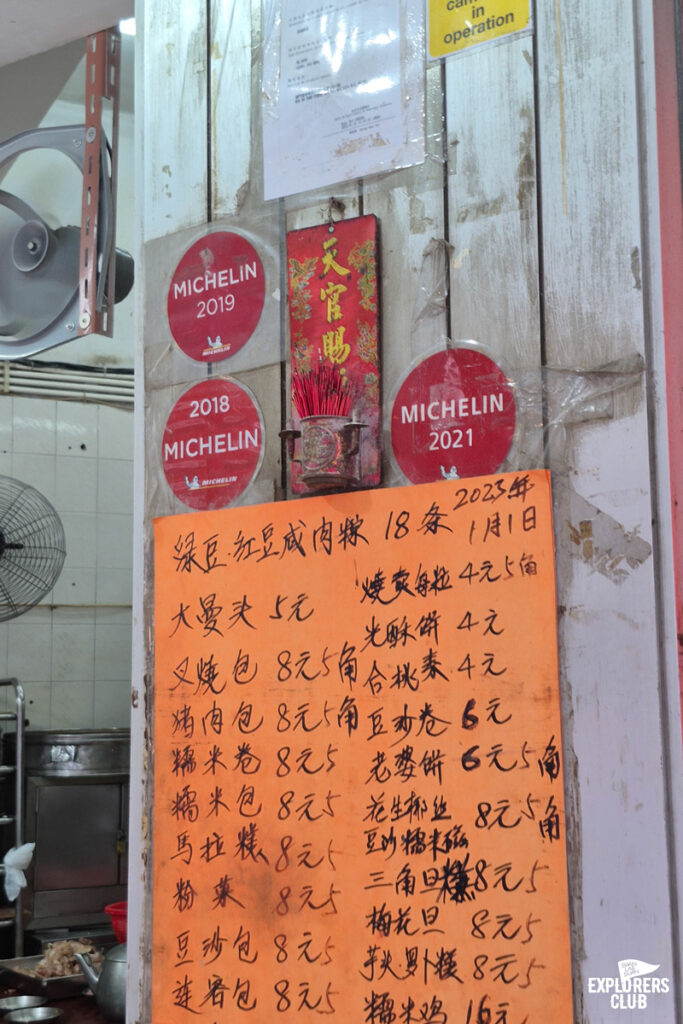 can
in
operation
MICHELIN
2019
MICHELIN
天官賜
2018
MICHELIN
MICHELIN
MICHELIN
2021
2023年
1月1日
绿豆.红豆咸肉粽 18条
大曼头 5元
叉燒包 8元5角
猪肉包 8元5角
糯米卷 8元5
糯米包 8元5
馬拉糕 8元5
粉菓 8元5
豆沙包 8元5
莲客包 8元5
燒賣每粒 4元5角
光酥饼 4元
合桃素 4元
豆沙卷 6元
老婆饼 6元5角
花生椰丝 8元5角
豆沙糯米磁
三角旦糕 8元5
梅花旦 8元5
芋头.罗卜糕 8元5
糯米鸡 16元
EXPLORERS
CLUB